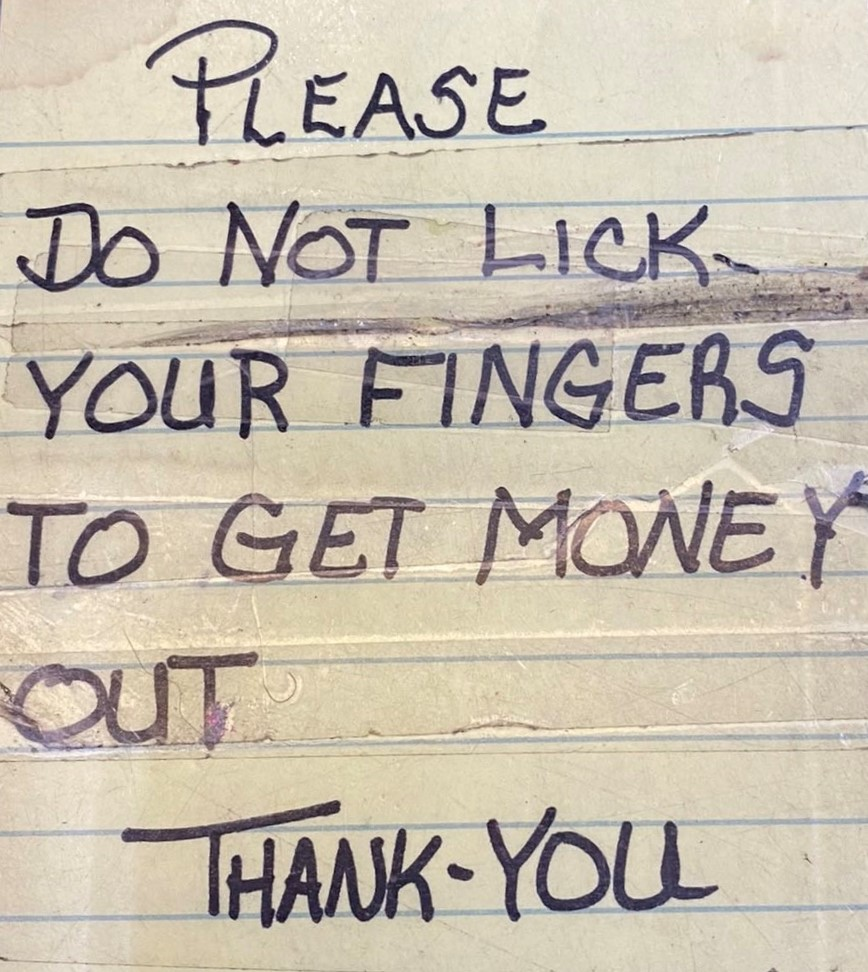 PLEASE
DO NOT LICK-
YOUR FINGERS
TO GET MONEY
OUT
THANK-YOU